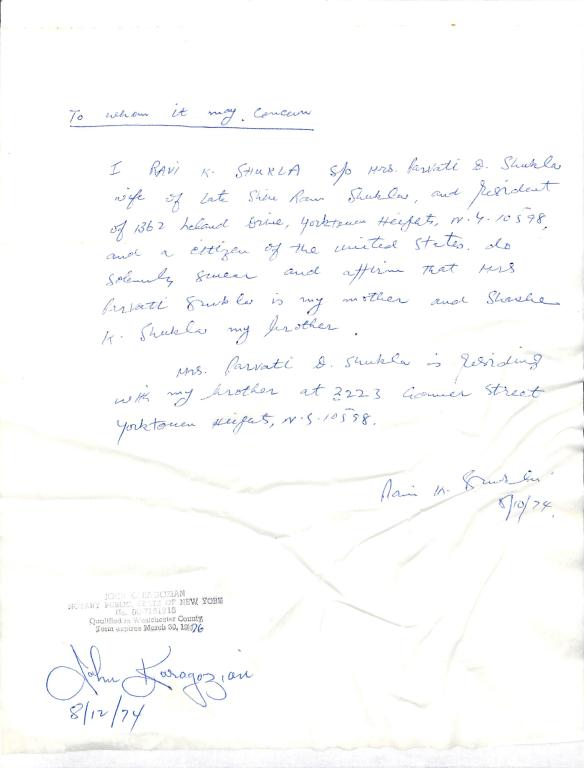 To whom it may concern
I RAVI K. SHUKLA s/o Mrs. Parvati D. Shukla
wife of late Shiv Ram Shukla, and resident
of 1362 Leland Drive, Yorktown Heights, N.Y. 10598,
and a citizen of the United States. do
solemnly swear and affirm that Mrs
Parvati Shukla is my mother and
K. Shukla my brother.
Mrs. Parvati D. Shukla is residing
with my brother at 3223 Gomer Street
Yorktown Heights, N.Y. 10598.
Ravi K. Shukla
8/10/74.
NOTARY PUBLIC, STATE OF NEW YORK
No.
Qualified in Westchester County
Term expires March 30, 1976
John Karagozian
8/12/74